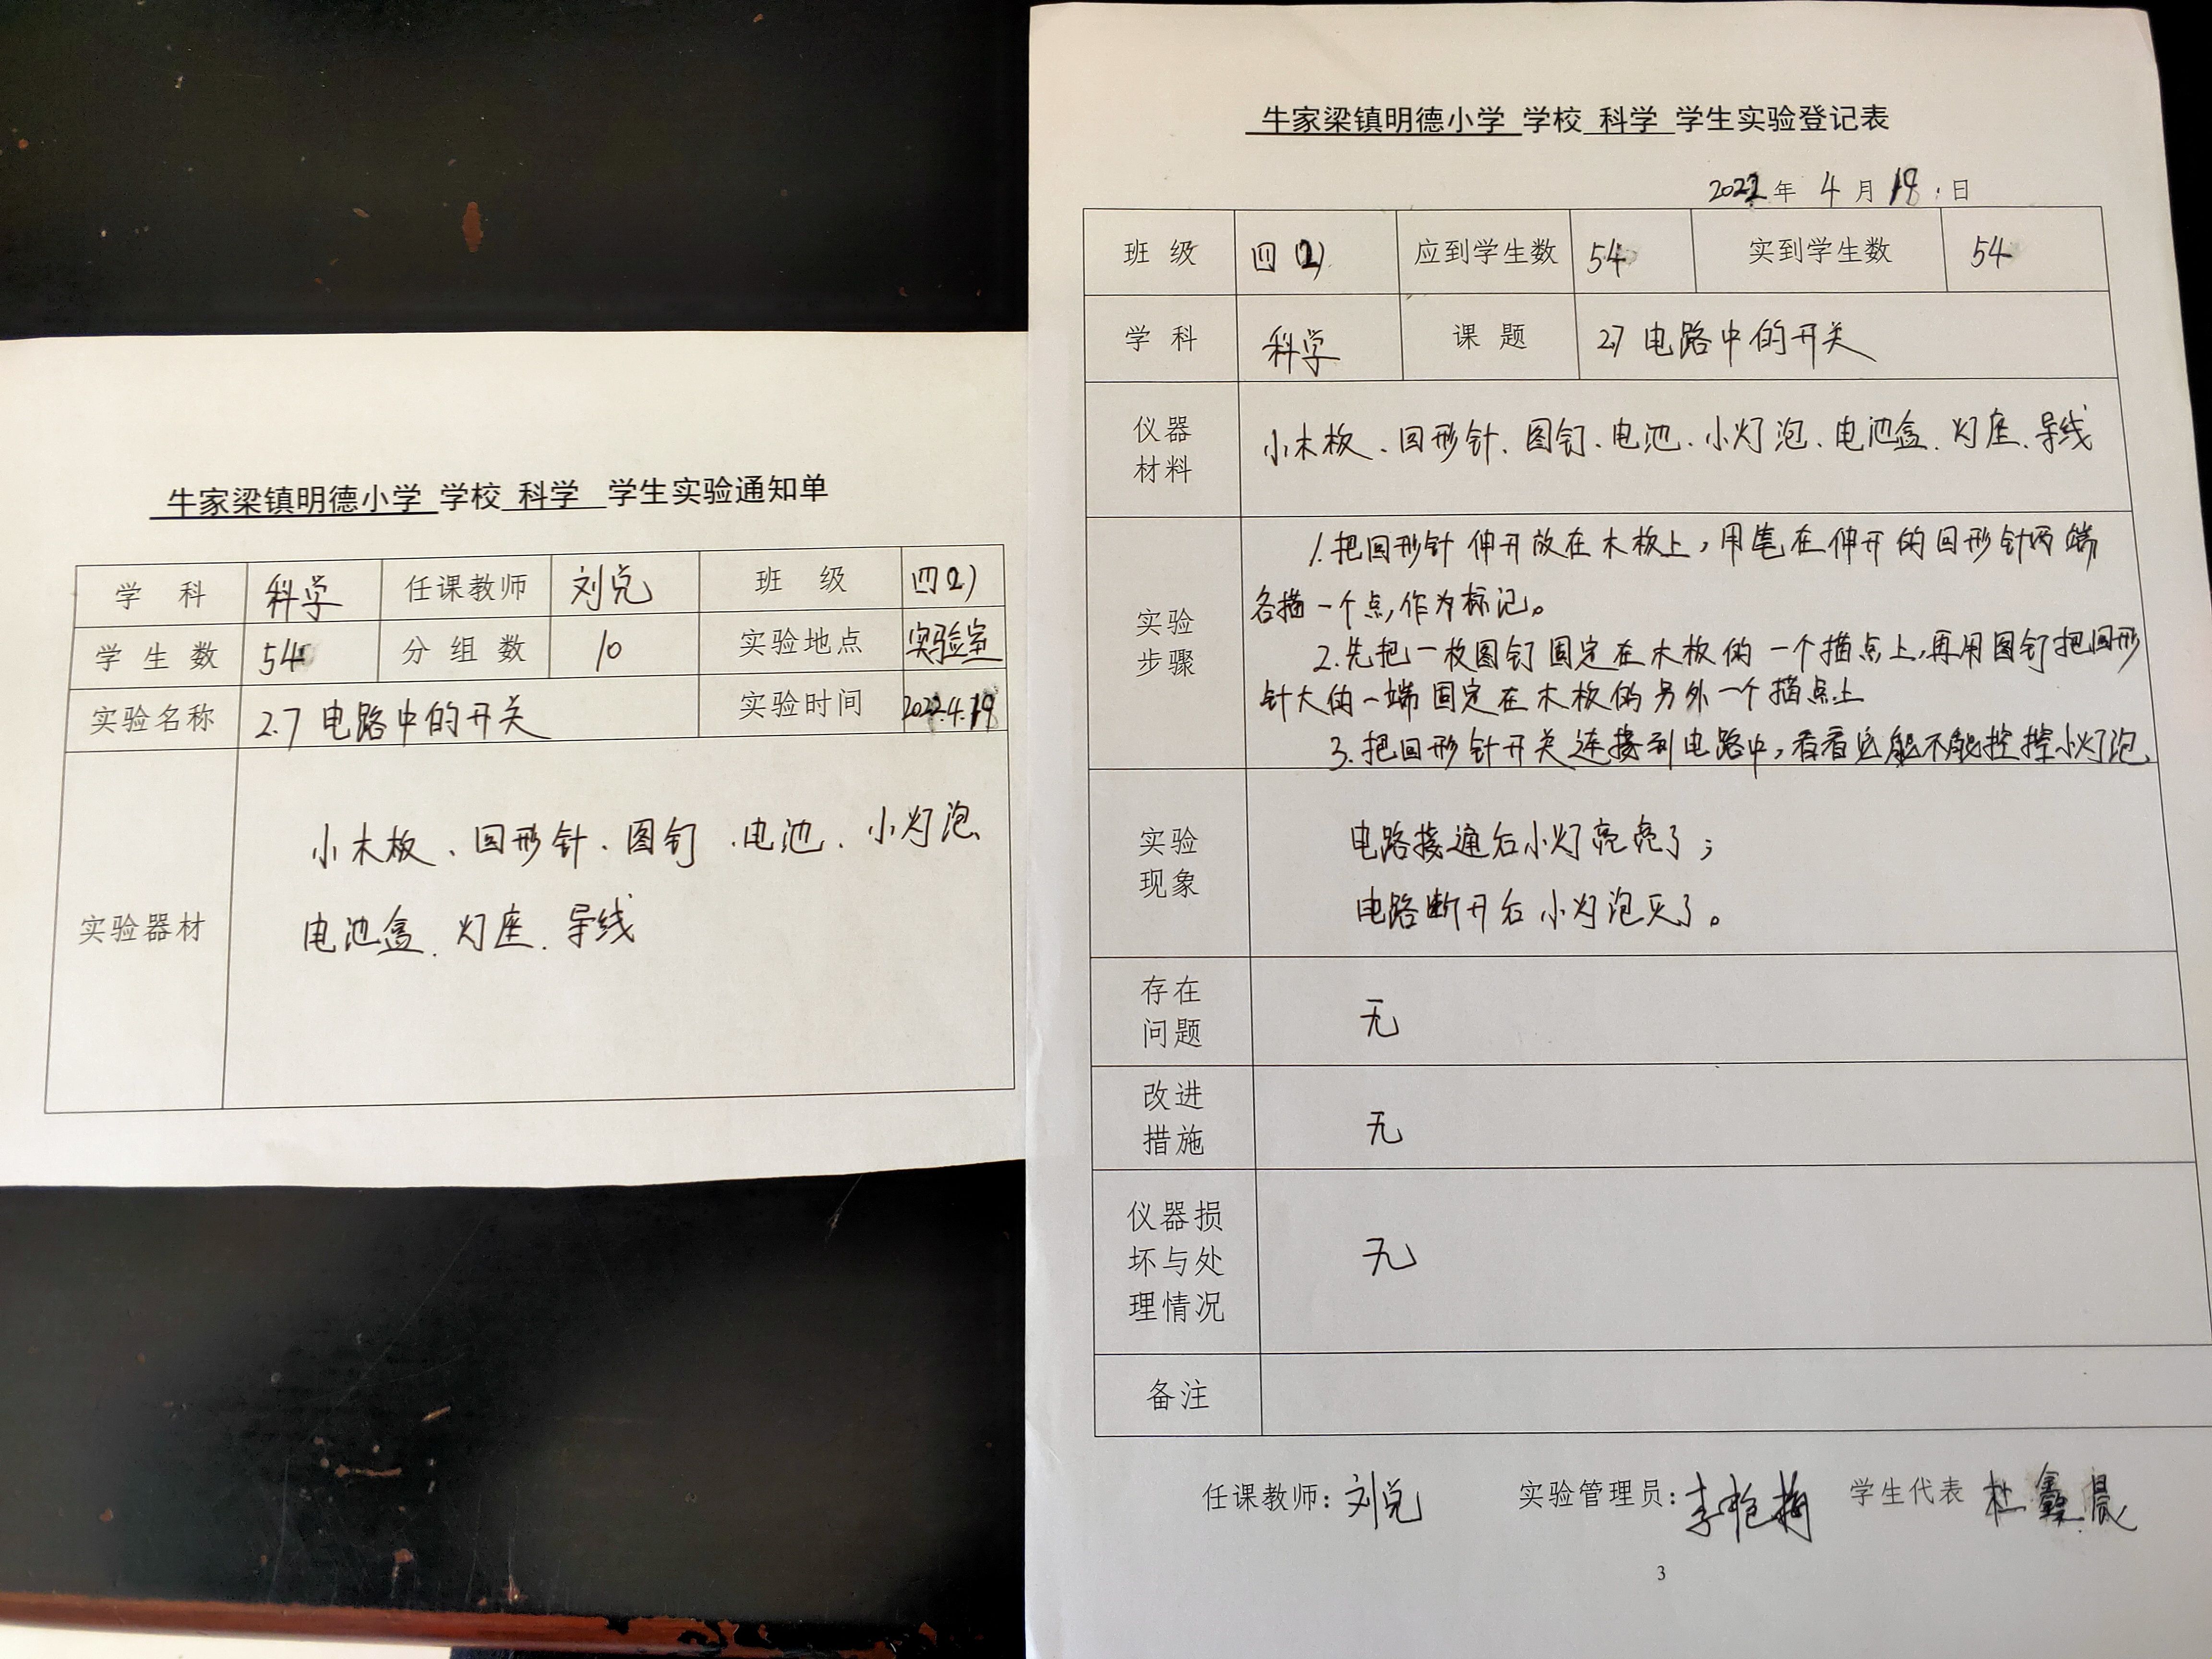 牛家梁镇明德小学 学校 科学 学生实验通知单
学 科 科学 任课教师 刘兑 班 级 四(2)
学生数 54 分组数 10 实验地点 实验室
实验名称 2.7 电路中的开关 实验时间 2022.4.19
实验器材
小木板、回形针、图钉、电池、小灯泡、
电池盒、灯座、导线
牛家梁镇明德小学 学校 科学 学生实验登记表
2022年 4月 日
班 级 四(2) 应到学生数 54 实到学生数 54
学 科 科学 课 题 2.7 电路中的开关
仪器
材料
小木板、回形针、图钉、电池、小灯泡、电池盒、灯座、导线
实验
步骤
1.把回形针伸开放在木板上，用笔在伸开的回形针两端
各描一个点，作为标记。
2.先把一枚图钉固定在木板的一个描点上，再用图钉把回形
针大的一端固定在木板的另外一个描点上
3.把回形针开关连接到电路中，看看它能不能控控小灯泡
实验
现象
电路接通后小灯亮亮了；
电路断开后小灯泡灭了。
存在
问题
无
改进
措施
无
仪器损
坏与处
理情况
无
备注
任课教师：刘兑 实验管理员：李艳梅 学生代表 杜鑫晨
3